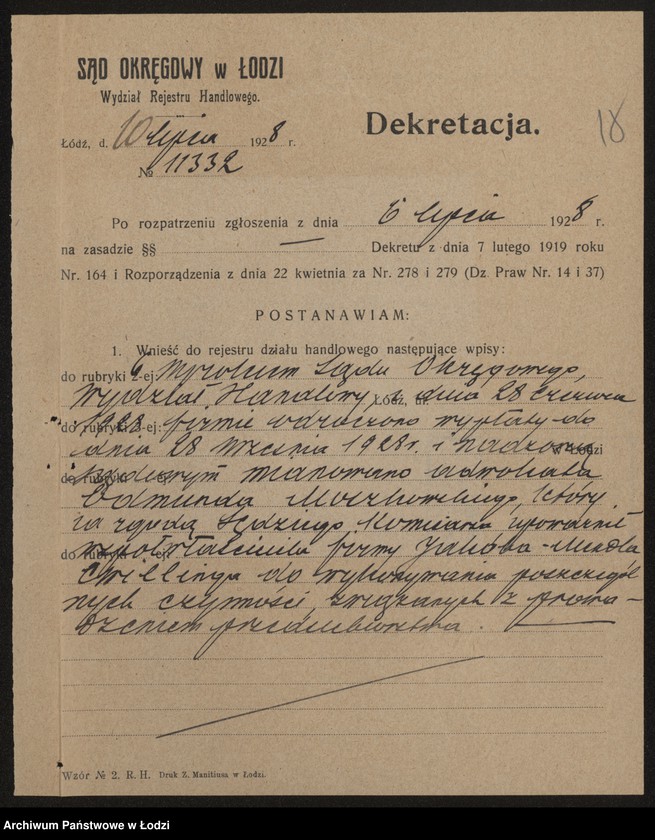 SĄD OKRĘGOWY w ŁODZI
Wydział Rejestru Handlowego.
Dekretacja.
18
Łódź, d. 10 lipca 1928 r.
№ 11332
Po rozpatrzeniu zgłoszenia z dnia 6 lipca 1928 r.
na zasadzie §§ — Dekretu z dnia 7 lutego 1919 roku
Nr. 164 i Rozporządzenia z dnia 22 kwietnia za Nr. 278 i 279 (Dz. Praw Nr. 14 i 37)
POSTANAWIAM:
1. Wnieść do rejestru działu handlowego następujące wpisy:
do rubryki 6 Wyrokiem Sądu Okręgowego,
Wydział Handlowy, z dnia 28 czerwca
1928 firmie odroczono wypłaty do
dnia 28 września 1928 r. i nadzorcą
sądowym mianowano adwokata
Edmunda Moszkowskiego, który
za zgodą Sędziego Komisarza upoważnił
współwłaściciela firmy Jakóba-Mendla
Cwillinga do wykonywania poszczegól
nych czynności, związanych z prowa-
dzeniem przedsiębiorstwa.
Wzór № 2. R. H. Druk Z. Manitiusa w Łodzi.
Archiwum Państwowe w Łodzi